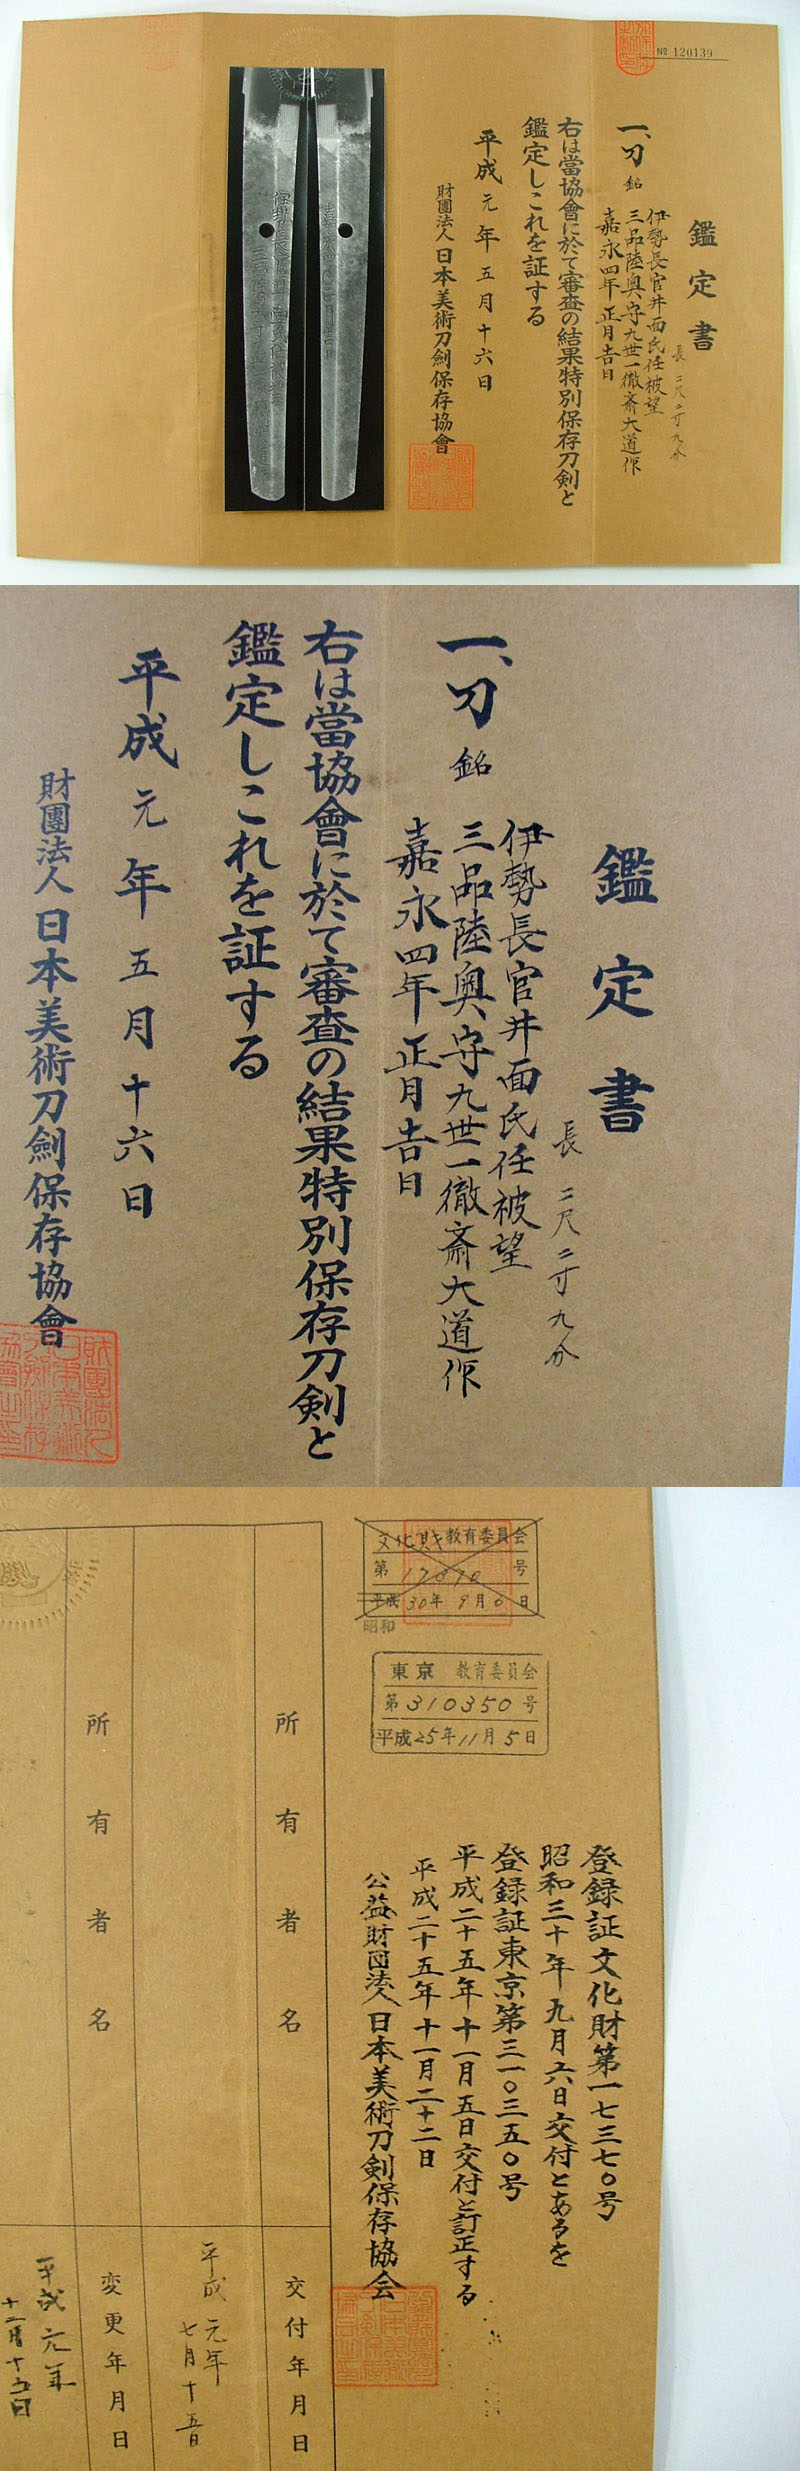 № 120139
鑑定書
長 二尺二寸九分
一、刀 銘
伊勢長官井面氏任被望
三品陸奥守九世一徹斎大道作
嘉永四年正月吉日
右は當協會に於て審査の結果特別保存刀剣と
鑑定しこれを証する
平成元年五月十六日
財團法人日本美術刀劍保存協會
鑑定書
長 二尺二寸九分
一、刀 銘
伊勢長官井面氏任被望
三品陸奥守九世一徹斎大道作
嘉永四年正月吉日
右は當協會に於て審査の結果特別保存刀剣と
鑑定しこれを証する
平成元年五月十六日
財團法人日本美術刀劍保存協會
文化財 教育委員会
第 号
平成 30年 9月 6日
昭和
東京 教育委員会
第310350号
平成25年11月5日
登録証文化財第一七三七〇号
昭和三十年九月六日交付とあるを
登録証東京第三一〇三五〇号
平成二十五年十一月五日交付と訂正する
平成二十五年十一月二十二日
公益財団法人日本美術刀剣保存協会
所有者名
交付年月日
平成元年
七月十五日
所有者名
変更年月日
平成元年
十二月十五日